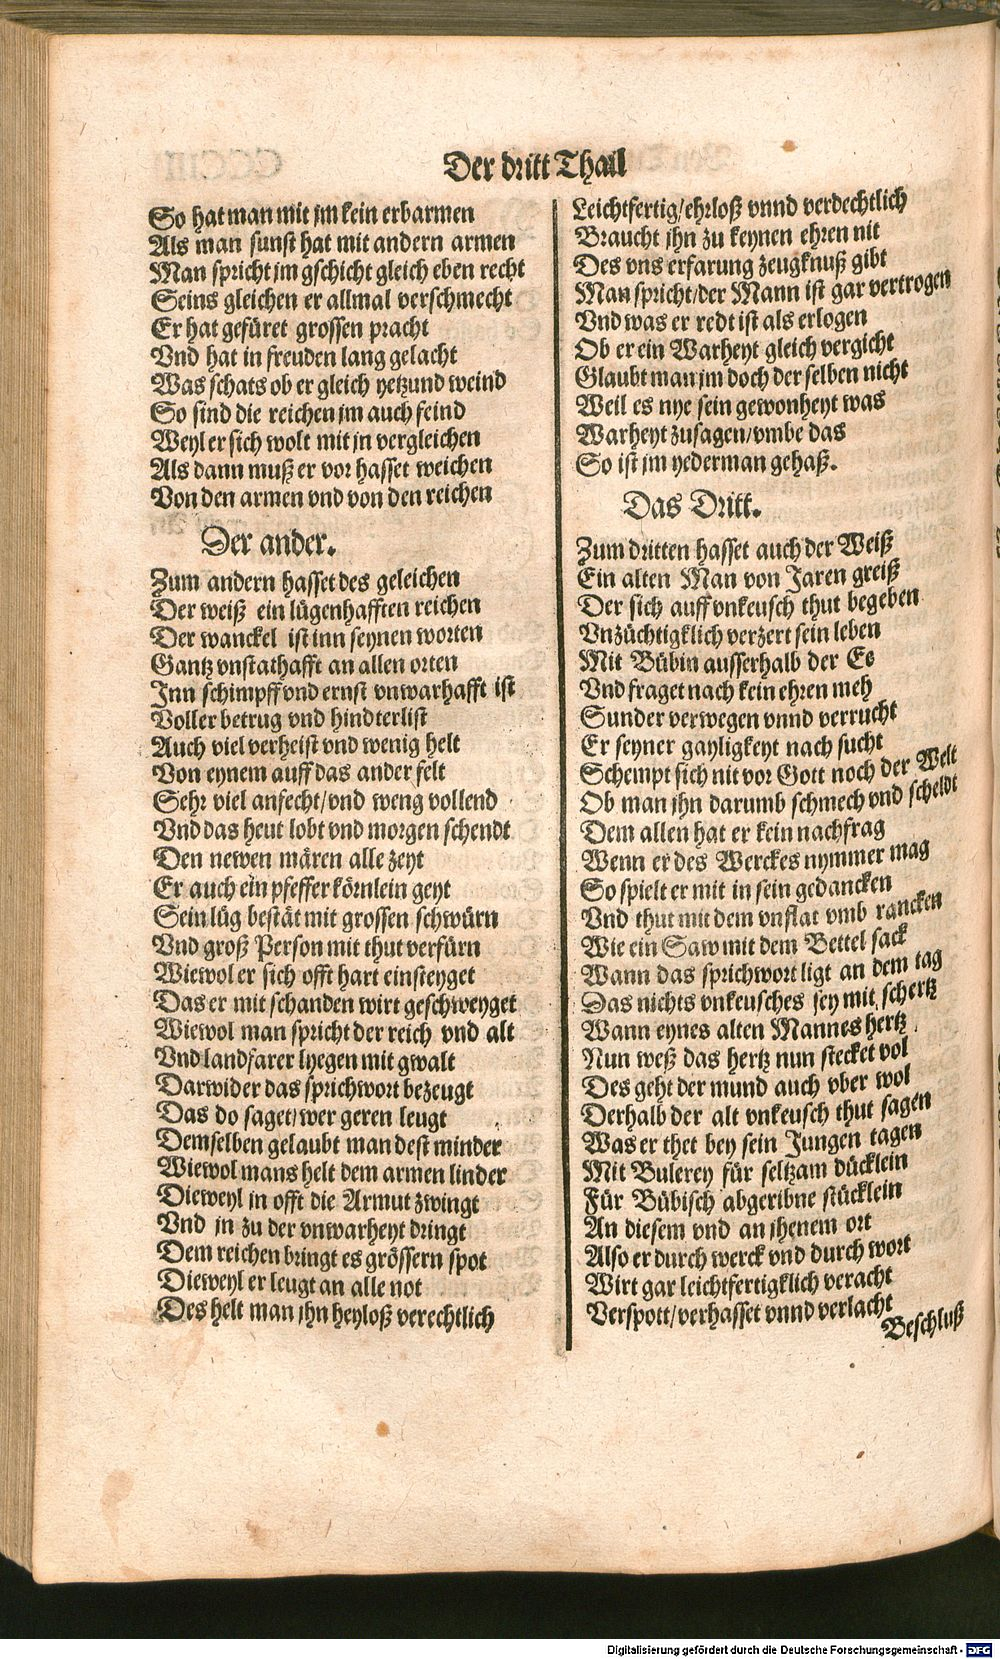 Der dritt Thail
So hat man mit jm kein erbarmen
Als man sunst hat mit andern armen
Man spricht jm gschicht gleich eben recht
Seins gleichen er allmal verschmecht
Er hat gefüret grossen pracht
Vnd hat in freuden lang gelacht
Was schats ob er gleich yetzund weind
So sind die reichen jm auch feind
Weyl er sich wolt mit jn vergleichen
Als dann muß er vor hasset weichen
Von den armen vnd von den reichen
Der ander.
Zum andern hasset des geleichen
Der weiß ein lügenhafften reichen
Der wanckel ist inn seynen worten
Gantz vnstathafft an allen orten
Inn schimpff vnd ernst vnwarhafft ist
Voller betrug vnd hindterlist
Auch viel verheist vnd wenig helt
Von eynem auff das ander felt
Sehr viel anfecht/vnd weng vollend
Vnd das heut lobt vnd morgen schendt
Den newen mären alle zeyt
Er auch ein pfeffer körnlein geyt
Sein lüg bestät mit grossen schwürn
Vnd groß Person mit thut verfürn
Wiewol er sich offt hart einsteyget
Das er mit schanden wirt geschweyget
Wiewol man spricht der reich vnd alt
Vnd landfarer lyegen mit gwalt
Darwider das sprichwort bezeugt
Das do saget/wer geren leugt
Demselben gelaubt man dest minder
Wiewol mans helt dem armen linder
Dieweyl in offt die Armut zwingt
Vnd jn zu der vnwarheyt dringt
Dem reichen bringt es grössern spot
Dieweyl er leugt an alle not
Des helt man jhn heyloß verechtlich
Leichtfertig/ehrloß vnnd verdechtlich
Braucht jhn zu keynen ehren nit
Des vns erfarung zeugknuß gibt
Man spricht/der Mann ist gar vertrogen
Vnd was er redt ist als erlogen
Ob er ein Warheyt gleich vergicht
Glaubt man jm doch der selben nicht
Weil es nye sein gewonheyt was
Warheyt zusagen/vmbe das
So ist jm yederman gehaß.
Das Dritt.
Zum dritten hasset auch der Weiß
Ein alten Man von Jaren greiß
Der sich auff vnkeusch thut begeben
Vnzüchtigklich verzert sein leben
Mit Bübin ausserhalb der Ee
Vnd fraget nach kein ehren meh
Sunder verwegen vnnd verrucht
Er seyner gayligkeyt nach sucht
Schempt sich nit vor Gott noch der Welt
Ob man jhn darumb schmech vnd scheldt
Dem allen hat er kein nachfrag
Wenn er des Werckes nymmer mag
So spielt er mit in sein gedancken
Vnd thut mit dem vnflat vmb rancken
Wie ein Saw mit dem Bettel sack
Wann das sprichwort ligt an dem tag
Das nichts vnkeusches sey mit schertz
Wann eynes alten Mannes hertz
Nun weß das hertz nun stecket vol
Des geht der mund auch vber wol
Derhalb der alt vnkeusch thut sagen
Was er thet bey sein Jungen tagen
Mit Bulerey für seltzam dücklein
Für Bübisch abgeribne stücklein
An diesem vnd an jhenem ort
Also er durch werck vnd durch wort
Wirt gar leichtfertigklich veracht
Verspott/verhasset vnnd verlacht
Beschluß
Digitalisierung gefördert durch die Deutsche Forschungsgemeinschaft - DFG